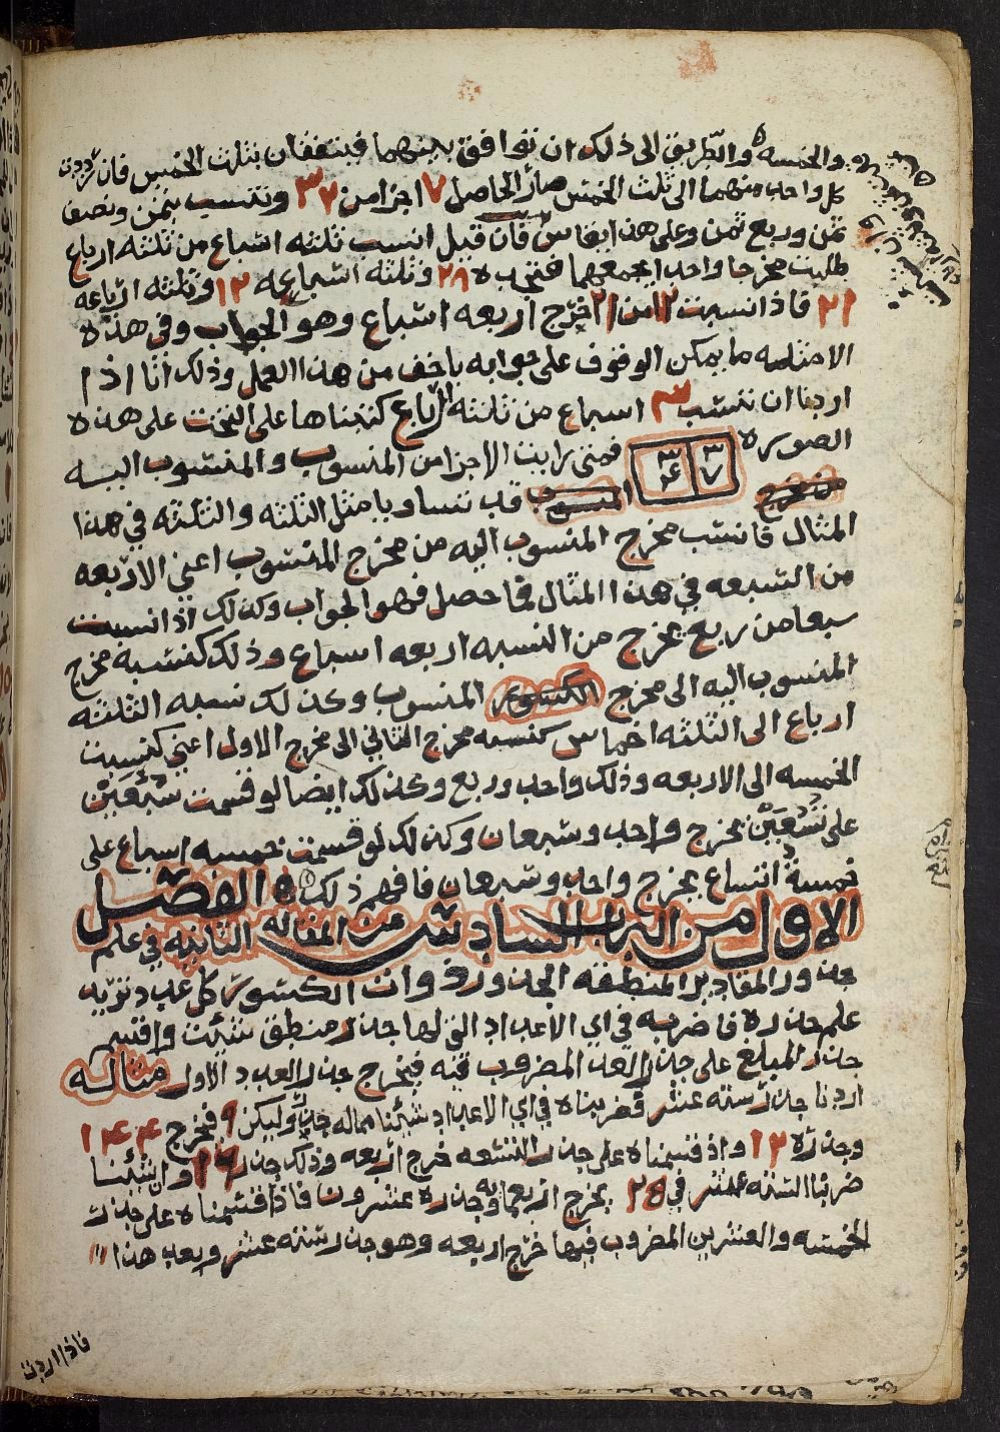 والخمسه والطريق الى ذلك ان توافق بينهما فيتفقان بثلث الخمس فان رددت
كل واحد منهما الى ثلث الخمس صار الحاصل ٧ اجزا من ٣٢ وتنسب بثمن ونصف
ثمن وربع ثمن وعلى هذا فقس فان قيل انسب ثلثه اسباع من ثلثه ارباع
طلبت مخرجا واحدا يجمعهما فتجده ٢٨ وثلثه اسباعه ١٢ وثلثه ارباعه
٢١ فاذا نسبت ١٢ من ٢١ خرج اربعه اسباع وهو الجواب وفي هذه
الامثله ما يمكن الوقوف على جوابه باخف من هذا العمل وذلك انا اذا
اردنا ان ننسب ٣ اسباع من ثلثه ارباع كتبناها على التخت على هذه
الصوره ٣ ٧ ٣ ٤ فمتى رايت الاجزا من المنسوب والمنسوب اليه
من مخرج المنسوب قد تساويا مثل الثلثه والثلثه في هذا
المثال فانسب مخرج المنسوب اليه من مخرج المنسوب اعني الاربعه
من السبعه في هذا المثال فما حصل فهو الجواب وكذلك اذا نسبت
سبعا من ربع يخرج من النسبه اربعه اسباع وذلك كنسبة مخرج
المنسوب اليه الى مخرج الكسور المنسوب وكذلك نسبه الثلثه
ارباع الى الثلثه اخماس كنسبه مخرج الثاني الى مخرج الاول اعني كنسبت
الخمسه الى الاربعه وذلك واحد وربع وكذلك ايضا لو قسمت سُبْعَيْن
على تُسْعَيْن يخرج واحد وسبعان وكذلك لو قسمت خمسه اسباع على
خمسة اتساع يخرج واحد وسبعان فافهم ذلك ه الفصل
الاول من الباب السادس من المقاله الثانيه في علم
جذور المقادير المنطقه الجذور ذوات الكسور كل عدد تريد
علم جذره فاضربه في اي الاعداد التي لها جذر منطق شئت واقسم
جذر المبلغ على جذر العدد المضروب فيه فيخرج جذر العدد الاول مثاله
اردنا جذر سته عشر فضربناه في اي الاعداد شئنا مما له جذر وليكن ٩ فخرج ١٤٤
وجذره ١٢ واذ قسمناه على جذر التسعه خرج اربعه وذلك جذر ١٦ وان شئنا
ضربنا السته عشر في ٢٥ يخرج اربعمايه وجذره عشرون فاذا قسمناه على جذر
الخمسه والعشرين المضروب فيها خرج اربعه وهو جذر سته عشر وبعد هذا
فاذا اردت